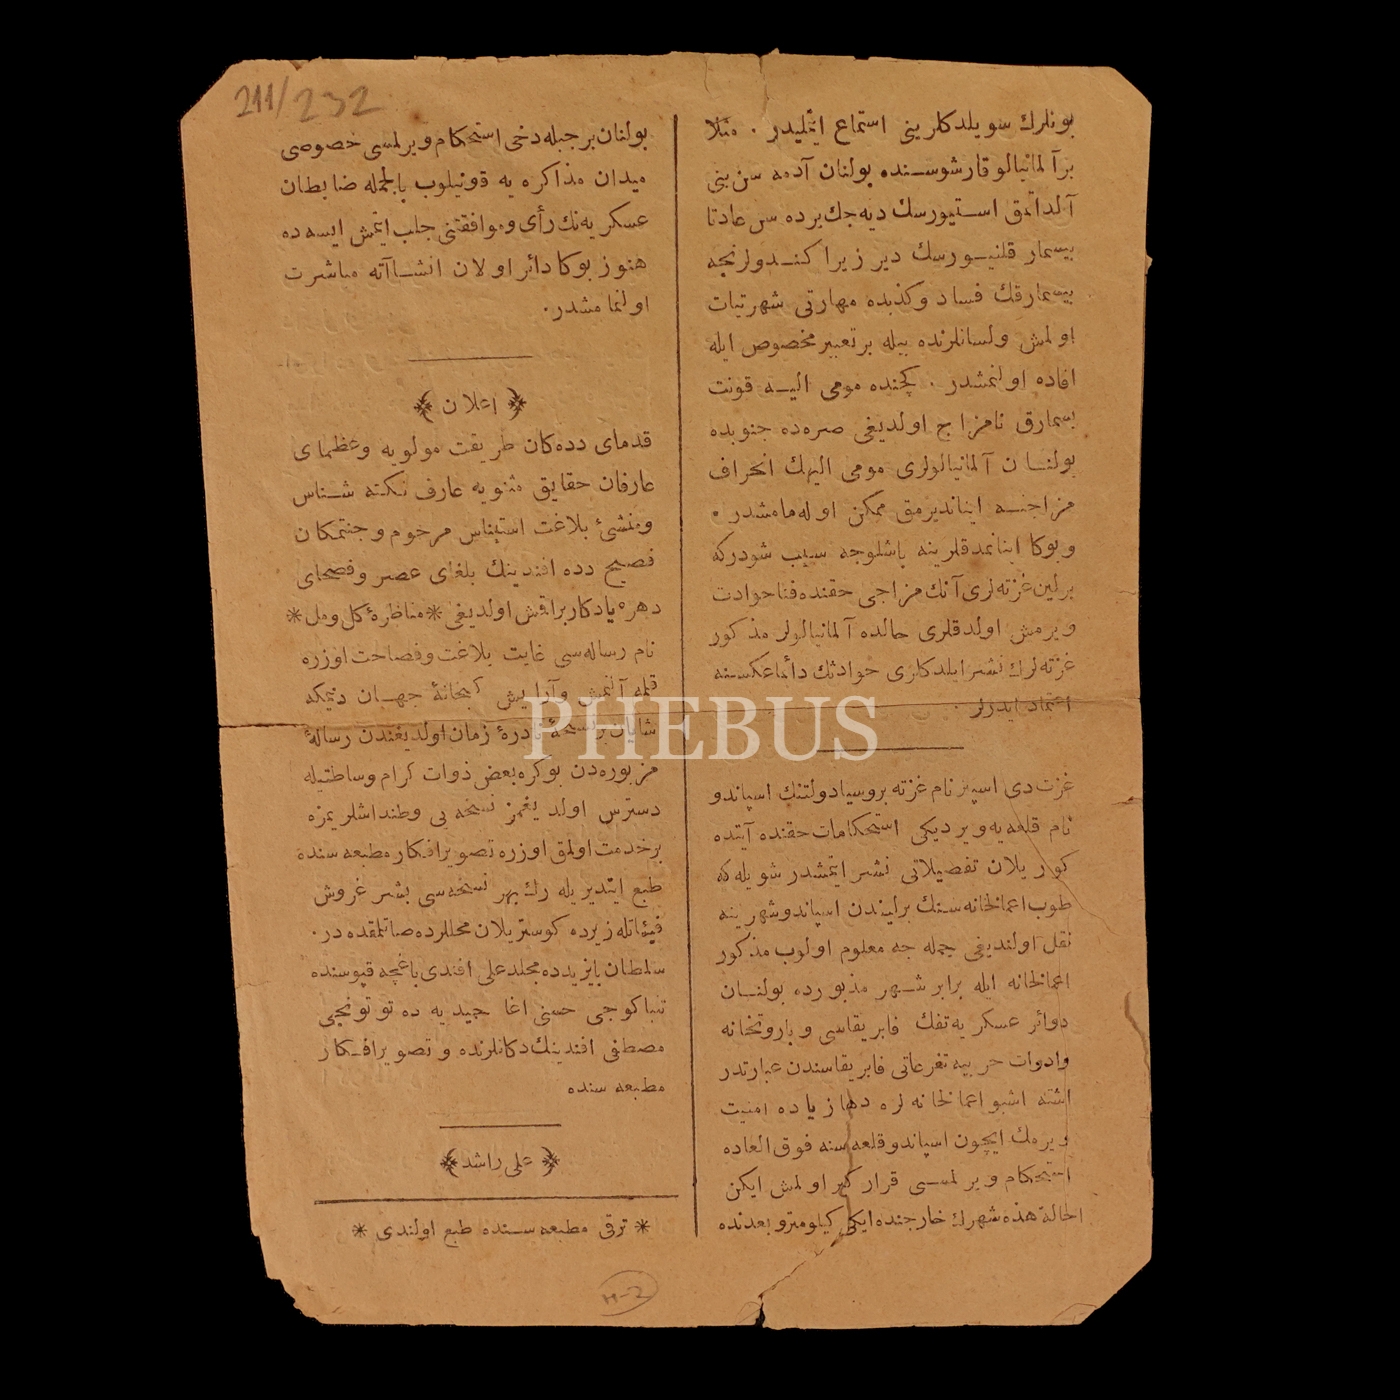 211/232
بونلرك سويلدكلرينى استماع ايتمليدر . مثلا
برآلمانيالو قارشوسنده بولنان آدمه سن بنى
آلداتمق استيورسك ديه جك برده سن عادتا
بيسمار قلنيورسك دير زيرا كندولرنجه
بيسمارقك فساد وكذبده مهارتى شهرتيات
اولمش ولسانلرنده بيله برتعبير مخصوص ايله
افاده اولنمشدر . كچنده مومى اليه قونت
بسمارق نامزاج اولديغى صره ده جنوبده
بولنان آلمانيالولرى مومى اليهك انحراف
مزاجنه ايناندیرمق ممكن اوله مامشدر .
وبوكا اينانمدقلرينه باشلوجه سبب شودركه
برلين غزته لرى آنك مزاجى حقنده فنا حوادث
ويرمش اولدقلرى حالده آلمانيالولر مذكور
غزته لرك نشر ايلدكلرى حوادثك دائما عكسنه
اعتماد ايدرلر .
غزت دى اسپنر نام غزته بروسيا دولتنك اسپاندو
نام قلعه يه ويرديكى استحكامات حقنده آيتده
كوريلان تفصيلاتى نشر ايتمشدر شويله كه
طوب اعمالخانه سنك برليندن اسپاندو شهرينه
نقل اولنديغى جمله جه معلوم اولوب مذكور
اعمالخانه ايله برابر شهر مذبورده بولنان
دوائر عسكريه تفك فابريقاسى وباروتخانه
وادوات حربيه تفرعاتى فابريقاسندن عبارتدر
اشته اشبو اعمالخانه لره دها زياده امنيت
ويرمك ايچون اسپاندو قلعه سنه فوق العاده
استحكام ويرلمسى قرار كير اولمش ايكن
الحالة هذه شهرك خارجنده ايكى كيلومترو بعدنده
بولنان بر جبله دخى استحكام ويرلمسى خصوصى
ميدان مذاكره يه قونيلوب بالجمله ضابطان
عسكريه نك رأى وموافقتنى جلب ايتمش ايسه ده
هنوز بوكا دائر اولان انشاآته مباشرت
اولنمامشدر.
﴿ اعلان ﴾
قدماى دده كان طريقت مولويه وعظماى
عارفان حقايق مثنويه عارف نكته شناس
ومنشئ بلاغت استيناس مرحوم وجنتمكان
فصيح دده افندينك بلغاى عصر وفصحاى
دهره يادكار براقش اولديغى * مناظرهٔ كل ومل *
نام رساله سى غايت بلاغت وفصاحت اوزره
قلمه آلنمش وآرايش كبخانهٔ جهان دنيمكه
شايان بر نسخهٔ نادرهٔ زمان اولديغندن رسالهٔ
مزبوره دن بوكره بعض ذوات كرام وساطتيله
دسترس اولديغمز نسخه يى وطنداشلريمزه
برخدمت اولمق اوزره تصوير افكار مطبعه سنده
طبع ايتديريله رك بهر نسخه سى بشر غروش
فيئاتله زيرده كوستريلان محللرده صاتلمقده در.
سلطان بايزيدده مجلد على افندى باغچه قپوسنده
تنباكوجى حسنى اغا جيديه ده توتونجى
مصطفى افندينك دكانلرنده و تصوير افكار
مطبعه سنده
﴿ على راشد ﴾
* ترقى مطبعه سنده طبع اولندى *
PHEBUS